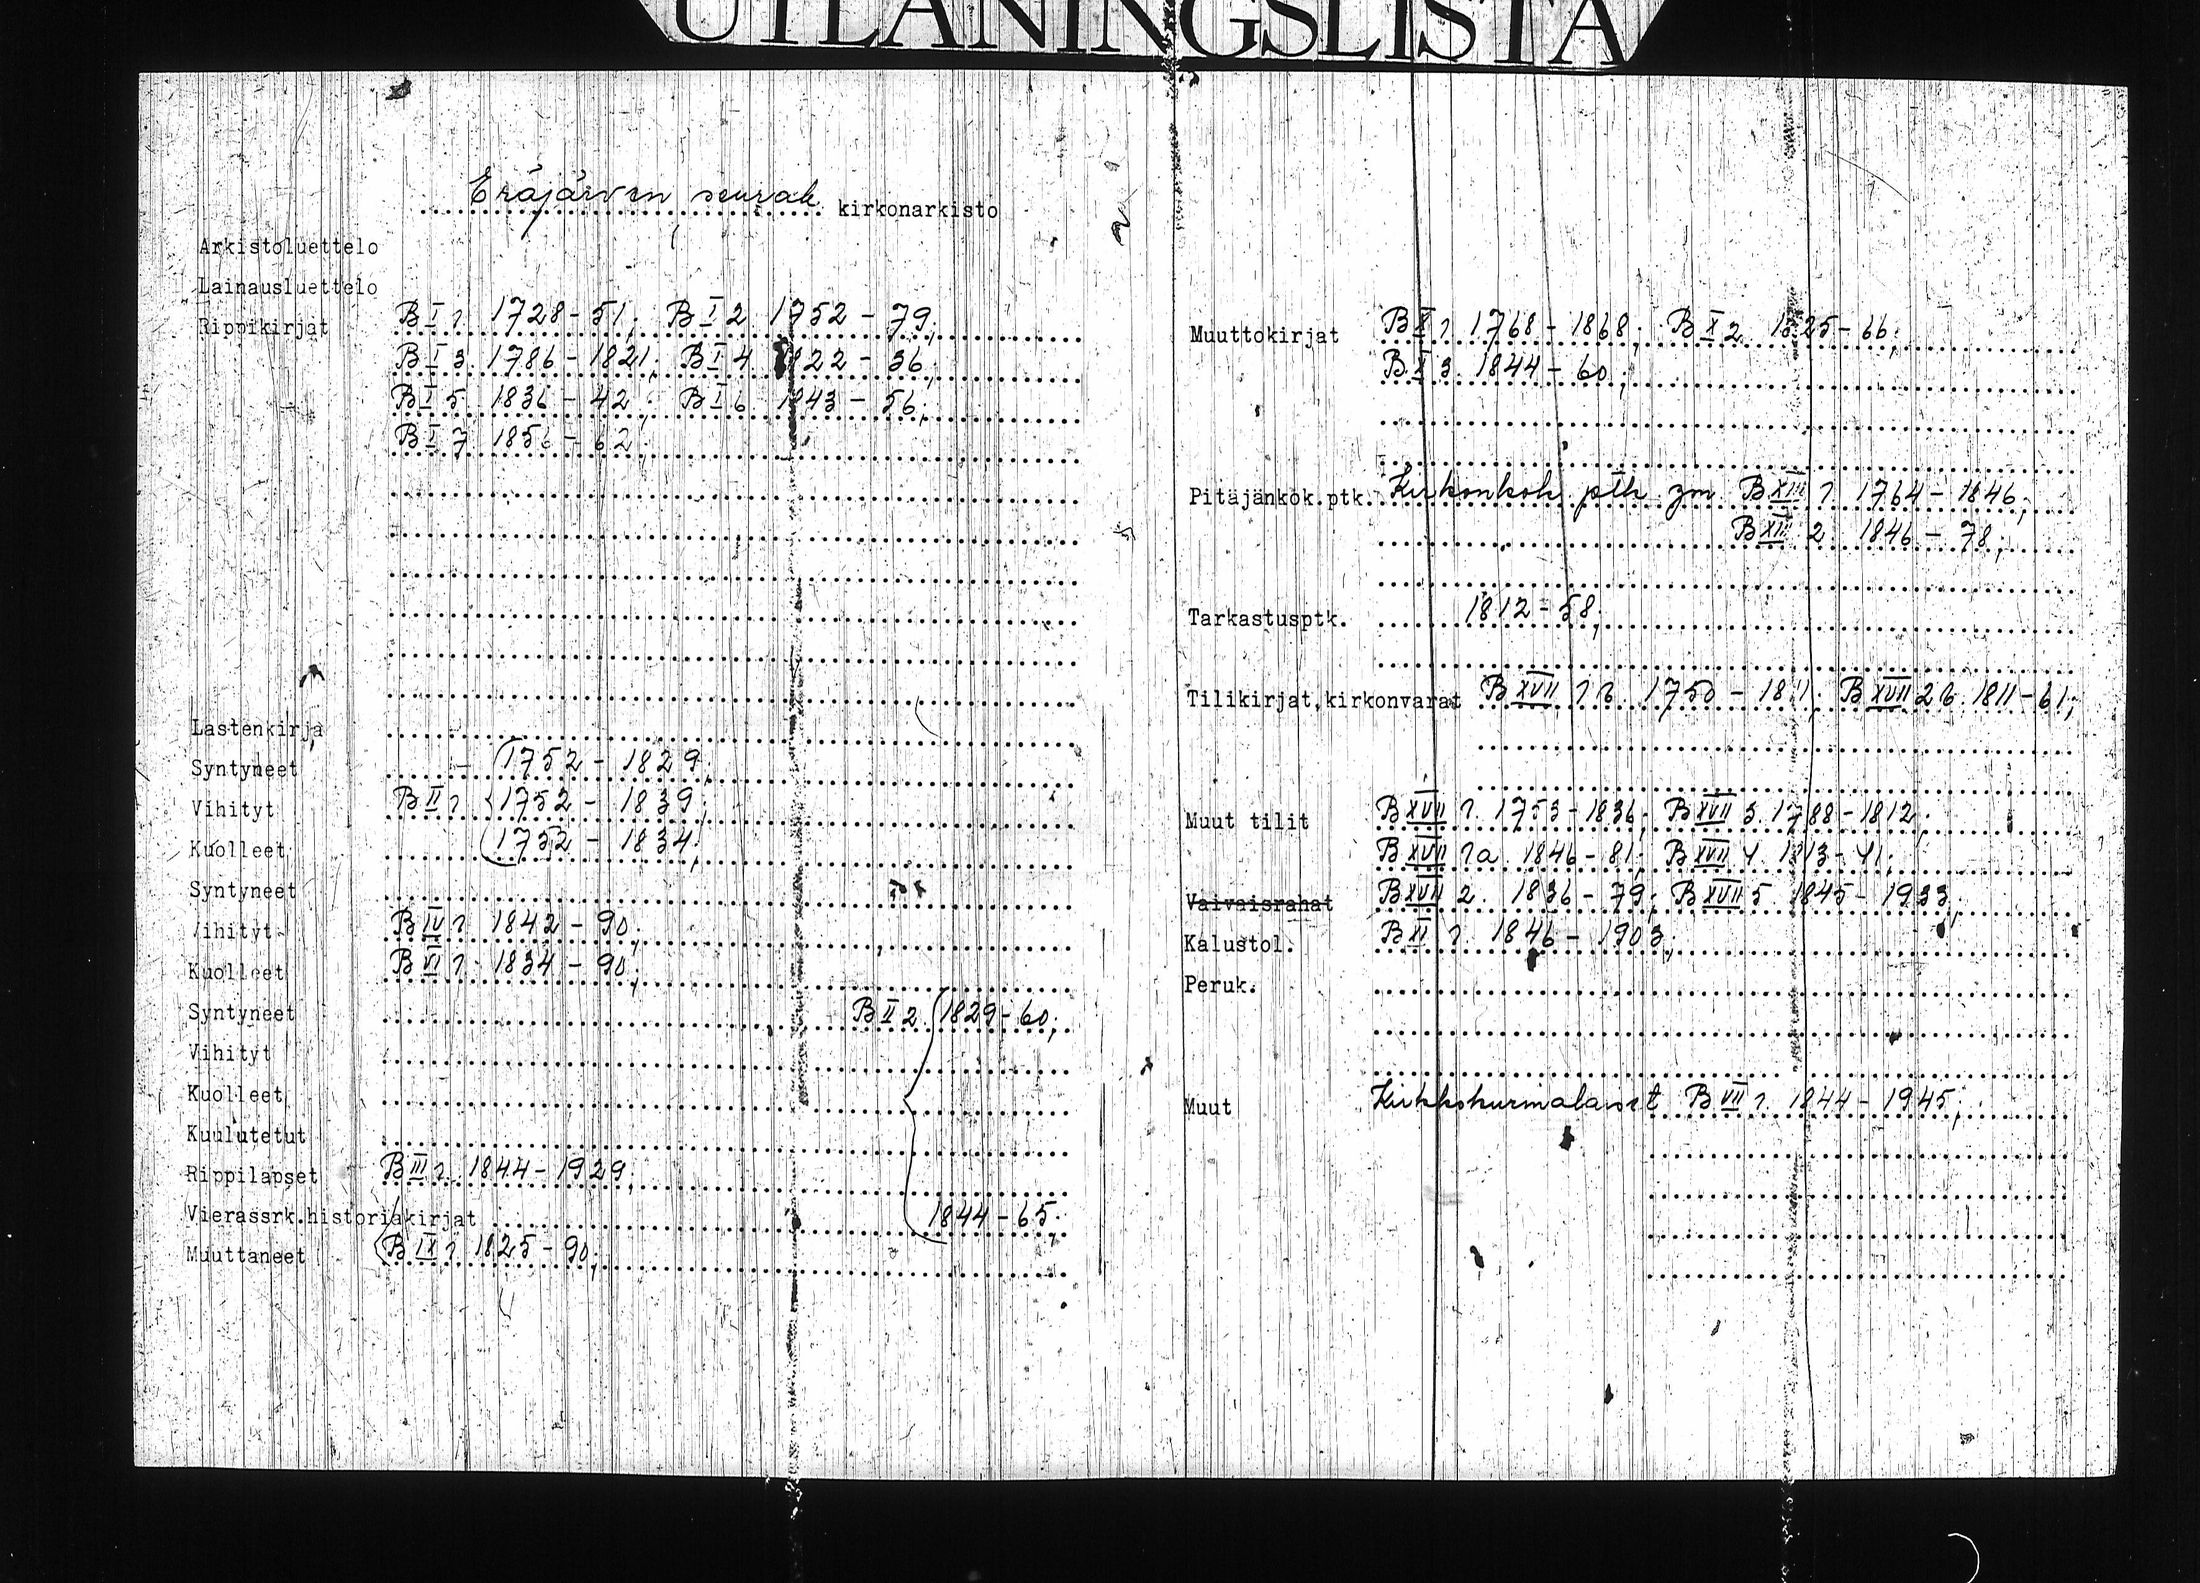 UTLÅNINGSLISTA
Eräjärven seurak. kirkonarkisto
Arkistoluettelo
Lainausluettelo
Rippikirjat B I 1 1728-51; B I 2 1752-79;
B I 3 1786-1821; B I 4 1822-36;
B I 5 1836-42; B I 6 1843-56;
B I 7 1856-62;
Lastenkirja
Syntyneet (1752-1829;
Vihityt B II 1 {1752-1839;
Kuolleet (1752-1834;
Syntyneet
Vihityt B IV 1 1842-90;
Kuolleet B VI 1 1834-90;
Syntyneet B II 2 {1829-60;
Vihityt
Kuolleet
Kuulutetut
Rippilapset B III 1 1844-1929;
Vierassrk.historiakirjat 1844-65;
Muuttaneet B IX 1 1825-90;
Muuttokirjat B X 1 1768-1868; B X 2 1825-66;
B X 3 1844-60;
Pitäjänkok.ptk. Kirkonkok. ptk ym B XIII 1 1764-1846;
B XIII 2 1846-78;
Tarkastusptk. 1812-58;
Tilikirjat,kirkonvarat B XVII 1b 1750-1811; B XVII 2b 1811-61;
Muut tilit B XVII 1 1753-1836; B XVII 3 1788-1812;
B XVII 1a 1846-81; B XVII 4 1813-41;
Vaivaisrahat B XVII 2 1836-79; B XVII 5 1845-1933;
Kalustol. B XI 1 1846-1903;
Peruk.
Muut B VII 1 1844-1945;